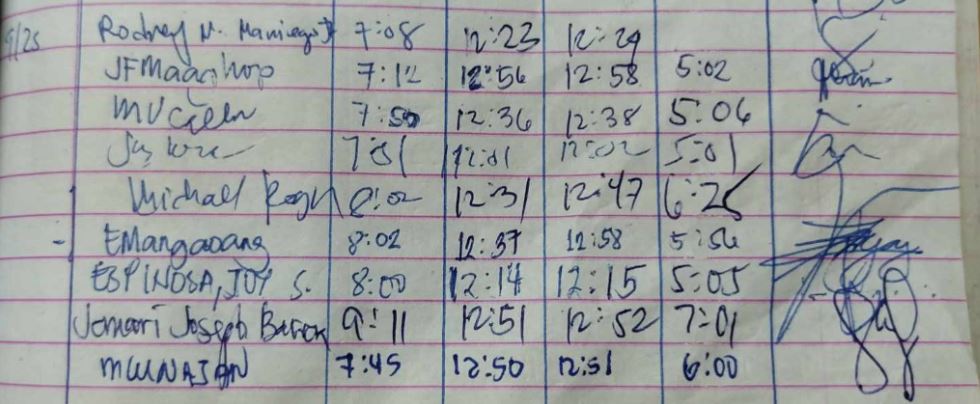 9/25 Rodney M. Maniego Jr 7:08 12:23 12:29
JFMaaghop 7:12 12:56 12:58 5:02
MV 7:50 12:36 12:38 5:06
7:01 12:01 12:02 5:01
Michael 8:02 12:31 12:47 6:25
EMangaoang 8:02 12:37 12:58 5:56
ESPINOSA, JOY S. 8:00 12:14 12:15 5:05
Jomari Joseph 9:11 12:51 12:52 7:01
7:45 12:50 12:51 6:00